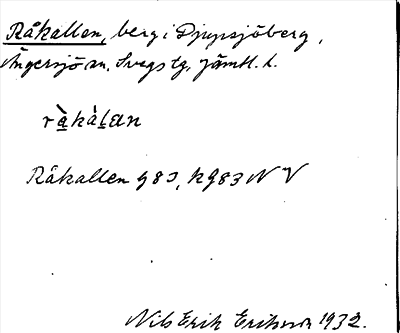 Råkallen, berg i Djupsjöberg,
Ängersjö sn, Svegs tg, Jämtl. l.
ràkàlan
Råkallen 983, K983 NV
Nils Erik Eriksson 1932.